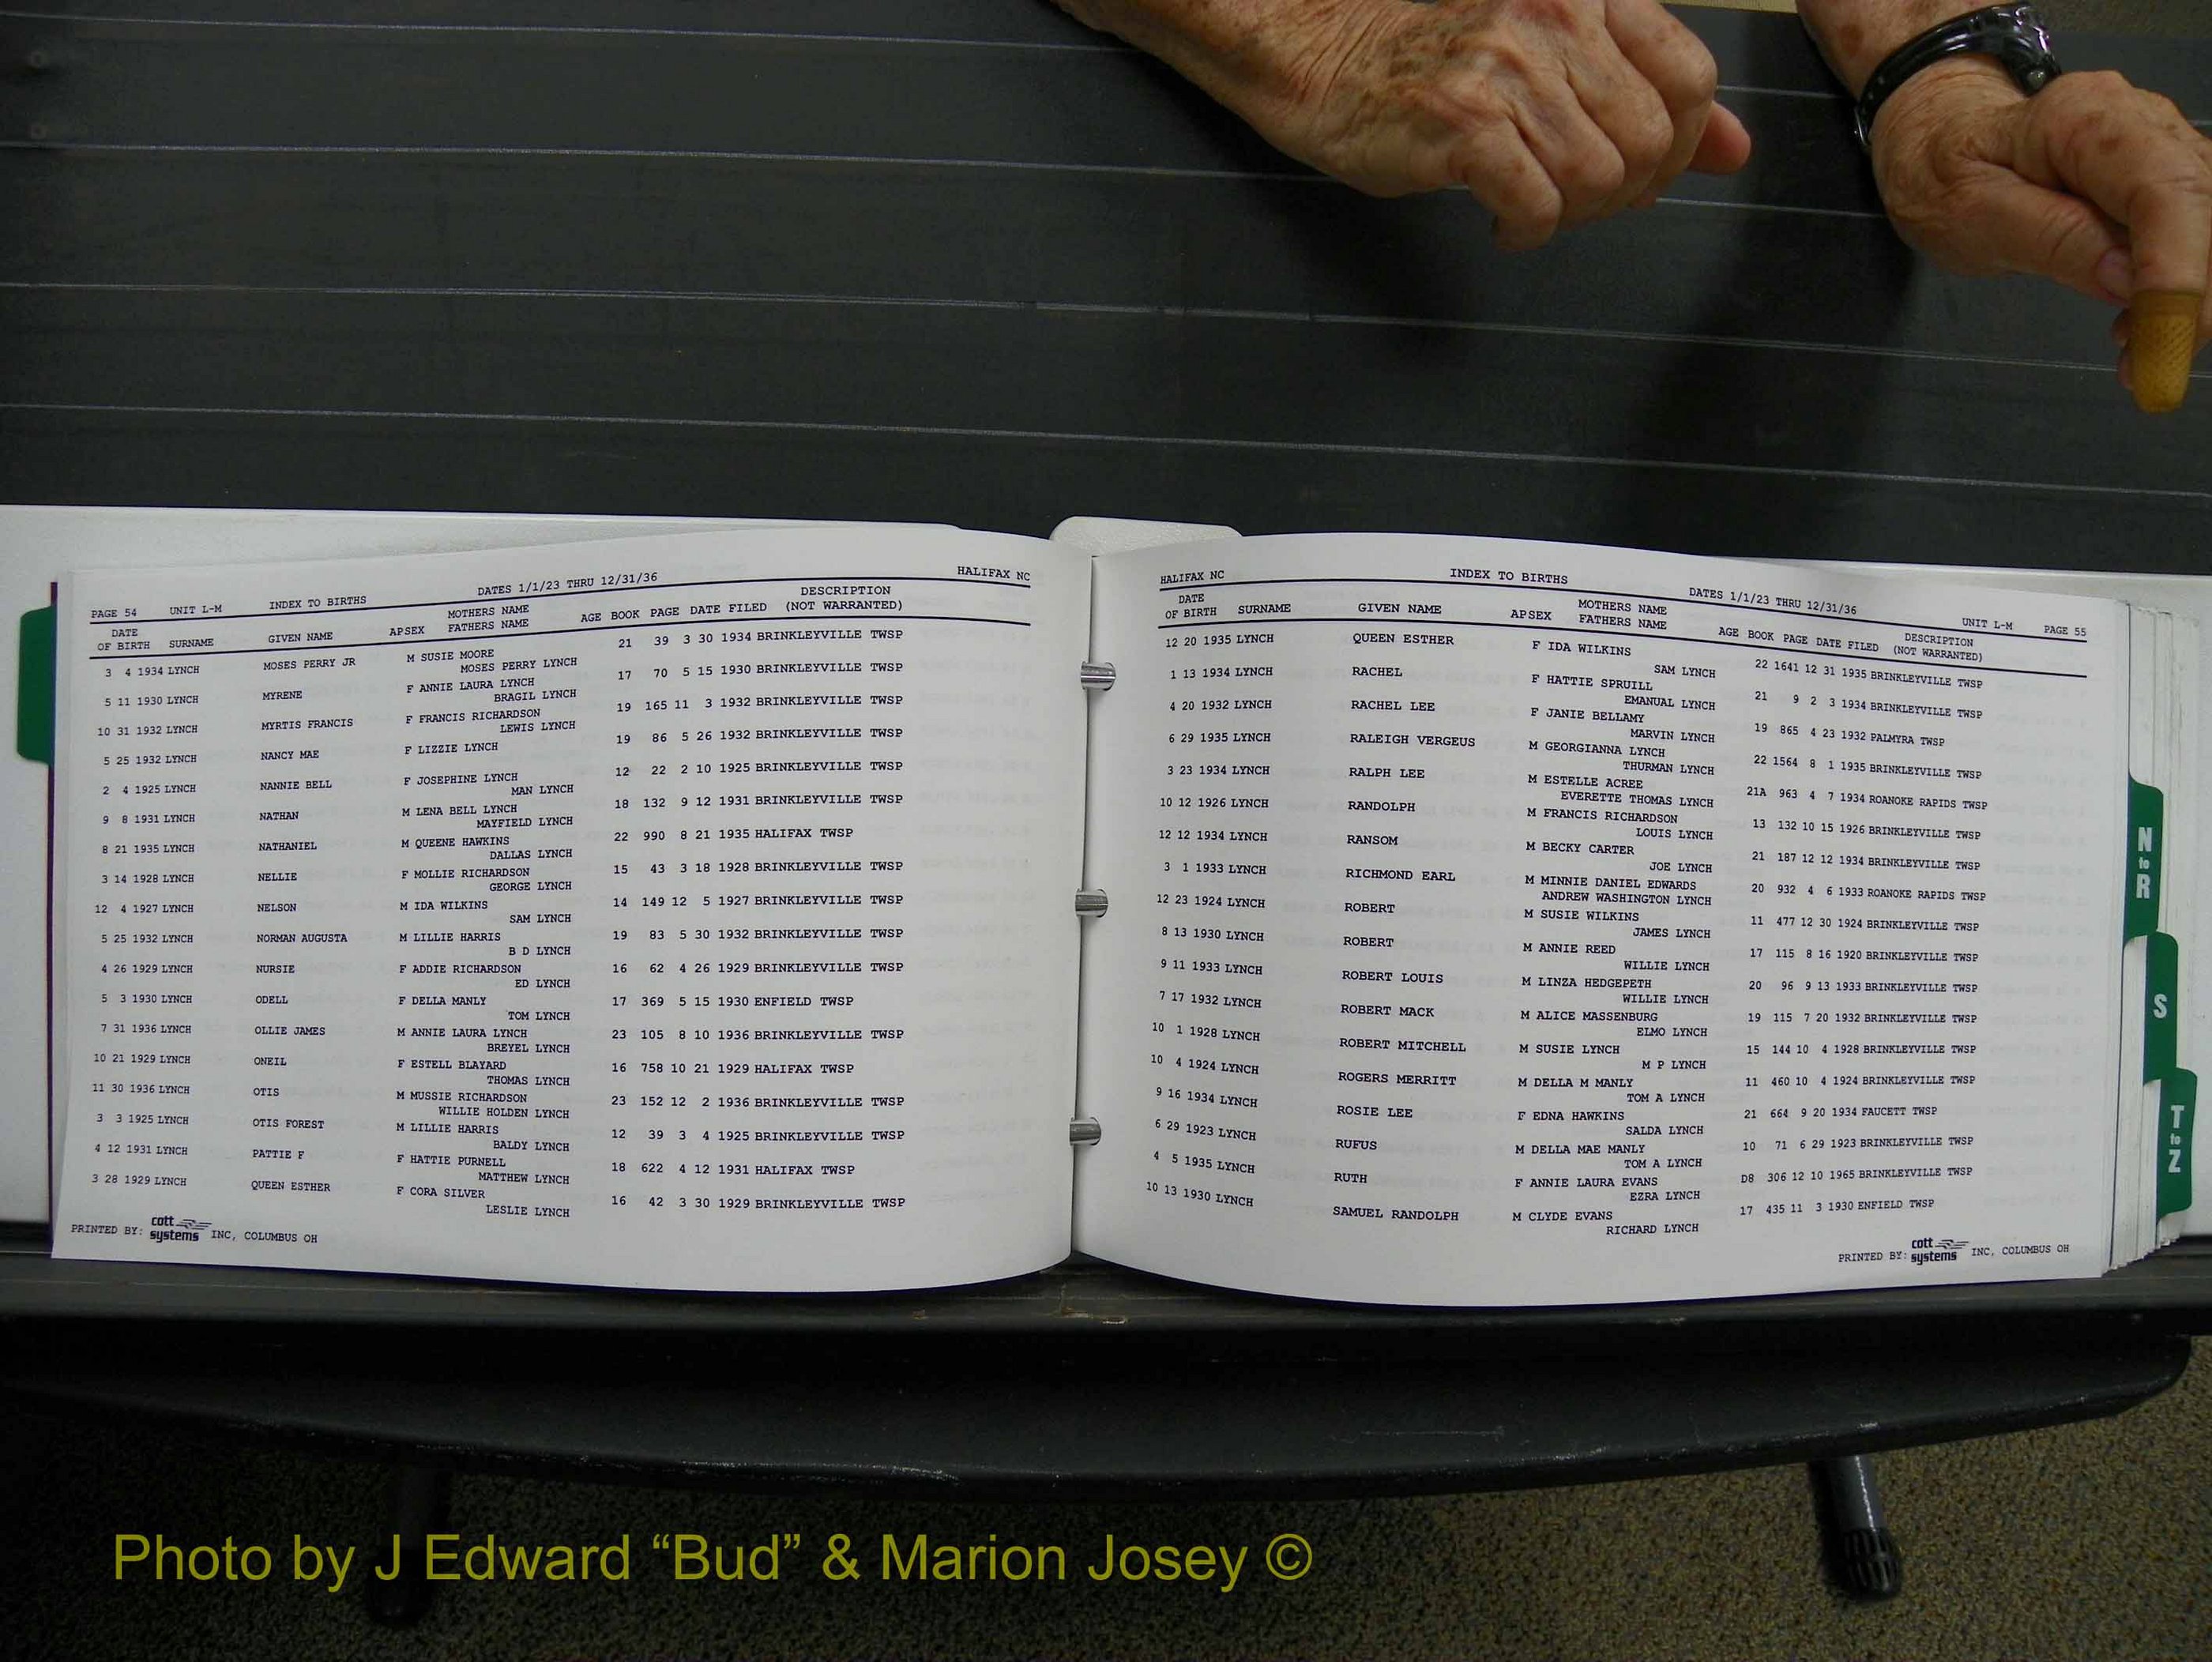 PAGE 54 UNIT L-M INDEX TO BIRTHS DATES 1/1/23 THRU 12/31/36 HALIFAX NC
DATE OF BIRTH SURNAME GIVEN NAME APSEX MOTHERS NAME FATHERS NAME AGE BOOK PAGE DATE FILED DESCRIPTION (NOT WARRANTED)
3 4 1934 LYNCH MOSES PERRY JR M SUSIE MOORE 21 39 3 30 1934 BRINKLEYVILLE TWSP
MOSES PERRY LYNCH
5 11 1930 LYNCH MYRENE F ANNIE LAURA LYNCH 17 70 5 15 1930 BRINKLEYVILLE TWSP
BRAGIL LYNCH
10 31 1932 LYNCH MYRTIS FRANCIS F FRANCIS RICHARDSON 19 165 11 3 1932 BRINKLEYVILLE TWSP
LEWIS LYNCH
5 25 1932 LYNCH NANCY MAE F LIZZIE LYNCH 19 86 5 26 1932 BRINKLEYVILLE TWSP
2 4 1925 LYNCH NANNIE BELL F JOSEPHINE LYNCH 12 22 2 10 1925 BRINKLEYVILLE TWSP
MAN LYNCH
9 8 1931 LYNCH NATHAN M LENA BELL LYNCH 18 132 9 12 1931 BRINKLEYVILLE TWSP
MAYFIELD LYNCH
8 21 1935 LYNCH NATHANIEL M QUEENE HAWKINS 22 990 8 21 1935 HALIFAX TWSP
DALLAS LYNCH
3 14 1928 LYNCH NELLIE F MOLLIE RICHARDSON 15 43 3 18 1928 BRINKLEYVILLE TWSP
GEORGE LYNCH
12 4 1927 LYNCH NELSON M IDA WILKINS 14 149 12 5 1927 BRINKLEYVILLE TWSP
SAM LYNCH
5 25 1932 LYNCH NORMAN AUGUSTA M LILLIE HARRIS 19 83 5 30 1932 BRINKLEYVILLE TWSP
B D LYNCH
4 26 1929 LYNCH NURSIE F ADDIE RICHARDSON 16 62 4 26 1929 BRINKLEYVILLE TWSP
ED LYNCH
5 3 1930 LYNCH ODELL F DELLA MANLY 17 369 5 15 1930 ENFIELD TWSP
TOM LYNCH
7 31 1936 LYNCH OLLIE JAMES M ANNIE LAURA LYNCH 23 105 8 10 1936 BRINKLEYVILLE TWSP
BREYEL LYNCH
10 21 1929 LYNCH ONEIL F ESTELL BLAYARD 16 758 10 21 1929 HALIFAX TWSP
THOMAS LYNCH
11 30 1936 LYNCH OTIS M MUSSIE RICHARDSON 23 152 12 2 1936 BRINKLEYVILLE TWSP
WILLIE HOLDEN LYNCH
3 3 1925 LYNCH OTIS FOREST M LILLIE HARRIS 12 39 3 4 1925 BRINKLEYVILLE TWSP
BALDY LYNCH
4 12 1931 LYNCH PATTIE F F HATTIE PURNELL 18 622 4 12 1931 HALIFAX TWSP
MATTHEW LYNCH
3 28 1929 LYNCH QUEEN ESTHER F CORA SILVER 16 42 3 30 1929 BRINKLEYVILLE TWSP
LESLIE LYNCH
PRINTED BY: cott systems INC, COLUMBUS OH
HALIFAX NC INDEX TO BIRTHS DATES 1/1/23 THRU 12/31/36 UNIT L-M PAGE 55
DATE OF BIRTH SURNAME GIVEN NAME APSEX MOTHERS NAME FATHERS NAME AGE BOOK PAGE DATE FILED DESCRIPTION (NOT WARRANTED)
12 20 1935 LYNCH QUEEN ESTHER F IDA WILKINS 22 1641 12 31 1935 BRINKLEYVILLE TWSP
SAM LYNCH
1 13 1934 LYNCH RACHEL F HATTIE SPRUILL 21 9 2 3 1934 BRINKLEYVILLE TWSP
EMANUAL LYNCH
4 20 1932 LYNCH RACHEL LEE F JANIE BELLAMY 19 865 4 23 1932 PALMYRA TWSP
MARVIN LYNCH
6 29 1935 LYNCH RALEIGH VERGEUS M GEORGIANNA LYNCH 22 1564 8 1 1935 BRINKLEYVILLE TWSP
THURMAN LYNCH
3 23 1934 LYNCH RALPH LEE M ESTELLE ACREE 21A 963 4 7 1934 ROANOKE RAPIDS TWSP
EVERETTE THOMAS LYNCH
10 12 1926 LYNCH RANDOLPH M FRANCIS RICHARDSON 13 132 10 15 1926 BRINKLEYVILLE TWSP
LOUIS LYNCH
12 12 1934 LYNCH RANSOM M BECKY CARTER 21 187 12 12 1934 BRINKLEYVILLE TWSP
JOE LYNCH
3 1 1933 LYNCH RICHMOND EARL M MINNIE DANIEL EDWARDS 20 932 4 6 1933 ROANOKE RAPIDS TWSP
ANDREW WASHINGTON LYNCH
12 23 1924 LYNCH ROBERT M SUSIE WILKINS 11 477 12 30 1924 BRINKLEYVILLE TWSP
JAMES LYNCH
8 13 1930 LYNCH ROBERT M ANNIE REED 17 115 8 16 1920 BRINKLEYVILLE TWSP
WILLIE LYNCH
9 11 1933 LYNCH ROBERT LOUIS M LINZA HEDGEPETH 20 96 9 13 1933 BRINKLEYVILLE TWSP
WILLIE LYNCH
7 17 1932 LYNCH ROBERT MACK M ALICE MASSENBURG 19 115 7 20 1932 BRINKLEYVILLE TWSP
ELMO LYNCH
10 1 1928 LYNCH ROBERT MITCHELL M SUSIE LYNCH 15 144 10 4 1928 BRINKLEYVILLE TWSP
M P LYNCH
10 4 1924 LYNCH ROGERS MERRITT M DELLA M MANLY 11 460 10 4 1924 BRINKLEYVILLE TWSP
TOM A LYNCH
9 16 1934 LYNCH ROSIE LEE F EDNA HAWKINS 21 664 9 20 1934 FAUCETT TWSP
SALDA LYNCH
6 29 1923 LYNCH RUFUS M DELLA MAE MANLY 10 71 6 29 1923 BRINKLEYVILLE TWSP
TOM A LYNCH
4 5 1935 LYNCH RUTH F ANNIE LAURA EVANS D8 306 12 10 1965 BRINKLEYVILLE TWSP
EZRA LYNCH
10 13 1930 LYNCH SAMUEL RANDOLPH M CLYDE EVANS 17 435 11 3 1930 ENFIELD TWSP
RICHARD LYNCH
PRINTED BY: cott systems INC, COLUMBUS OH
N to R
S
T to Z
Photo by J Edward “Bud” & Marion Josey ©